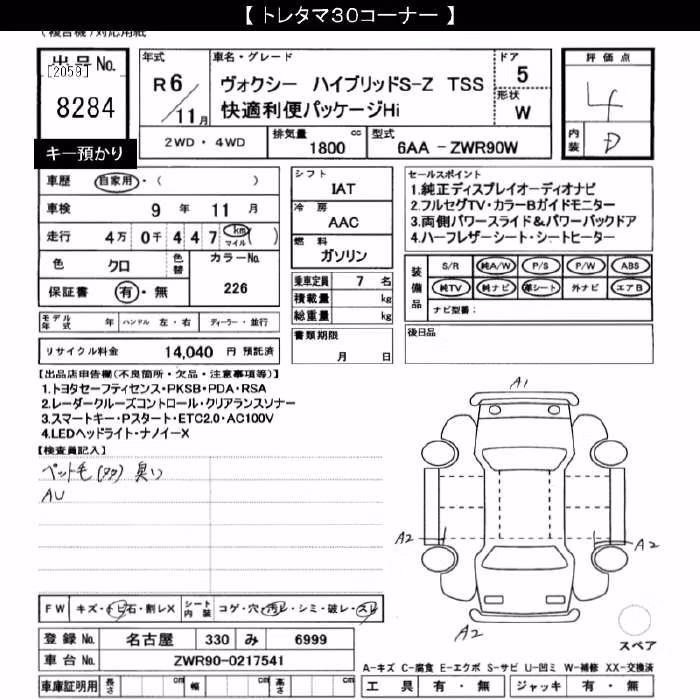 【 トレタマ30コーナー 】
(複合機)対応用紙
出品No. [2059] 8284
キー預かり
年式 R6/11月
車名・グレード ヴォクシー ハイブリッドS-Z TSS
快適利便パッケージHi
ドア 5
形状 W
評価点 4
内装 D
2WD・4WD 排気量 1800 cc 型式 6AA-ZWR90W
車歴 自家用・( )
車検 9年 11月
走行 4万 0千 4 4 7 km マイル( )
色 クロ 色替 カラーNo. 226
保証書 有・無
シフト IAT
冷房 AAC
燃料 ガソリン
乗車定員 7 名
積載量 kg
総重量 kg
セールスポイント
1.純正ディスプレイオーディオナビ
2.フルセグTV・カラーBガイドモニター
3.両側パワースライド&パワーバックドア
4.ハーフレザーシート・シートヒーター
装備品 S/R 純A/W P/S P/W ABS
純TV 純ナビ 革シート 外ナビ エアB
ナビ型番:
モデル年式 年 ハンドル 左・右 ディーラー・並行
書類期限 月 日
後日品
リサイクル料金 14,040 円 預託済
【出品店申告欄(不良箇所・欠品・注意事項等)】
1.トヨタセーフティセンス・PKSB・PDA・RSA
2.レーダークルーズコントロール・クリアランスソナー
3.スマートキー・Pスタート・ETC2.0・AC100V
4.LEDヘッドライト・ナノイーX
【検査員記入】
ペット毛(タタ) 臭い
AU
A1
A2
A2
A2
FW キズ・トビ石・割レX シート内装 コゲ・穴・汚レ・シミ・破レ・スレ
スペア
登録No. 名古屋 330 み 6999
車台No. ZWR90-0217541
A-キズ C-腐食 E-エクボ S-サビ U-凹ミ W-補修 XX-交換済
車庫証明用 長さ cm 幅 cm 高さ cm
工具 有・無 ジャッキ 有・無